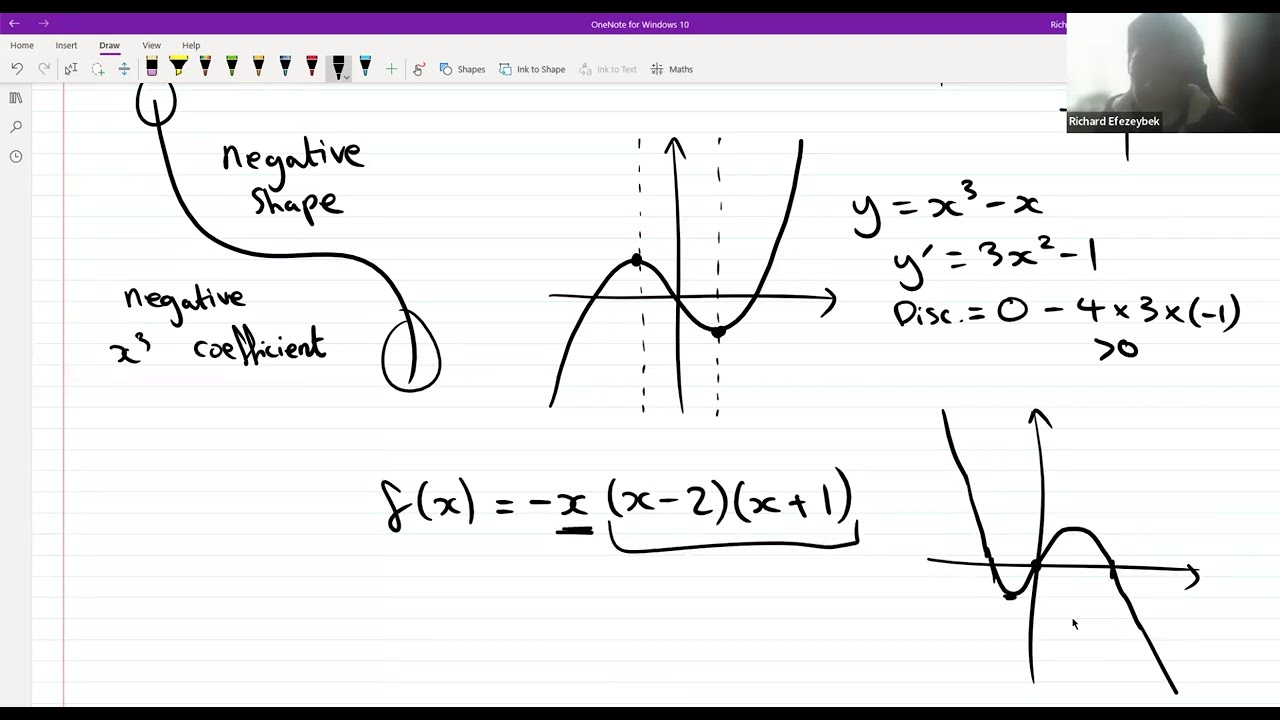 OneNote for Windows 10
Home Insert Draw View Help
Shapes Ink to Shape Ink to Text Maths
Richard Efezeybek
negative
shape
negative
x³ coefficient
y = x³ - x
y′ = 3x² - 1
Disc. = 0 - 4 × 3 × (-1)
>0
f(x) = -x (x-2)(x+1)